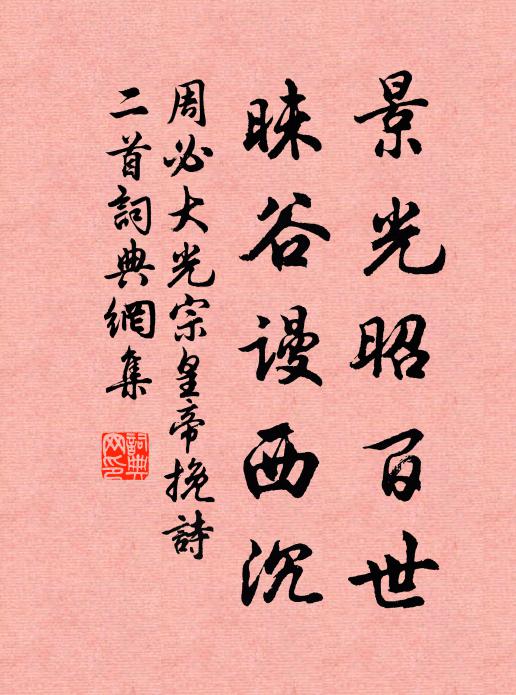 景光昭百世
昧谷谩西沉
周必大光宗皇帝挽詩
二首詞典網集
詞典网印